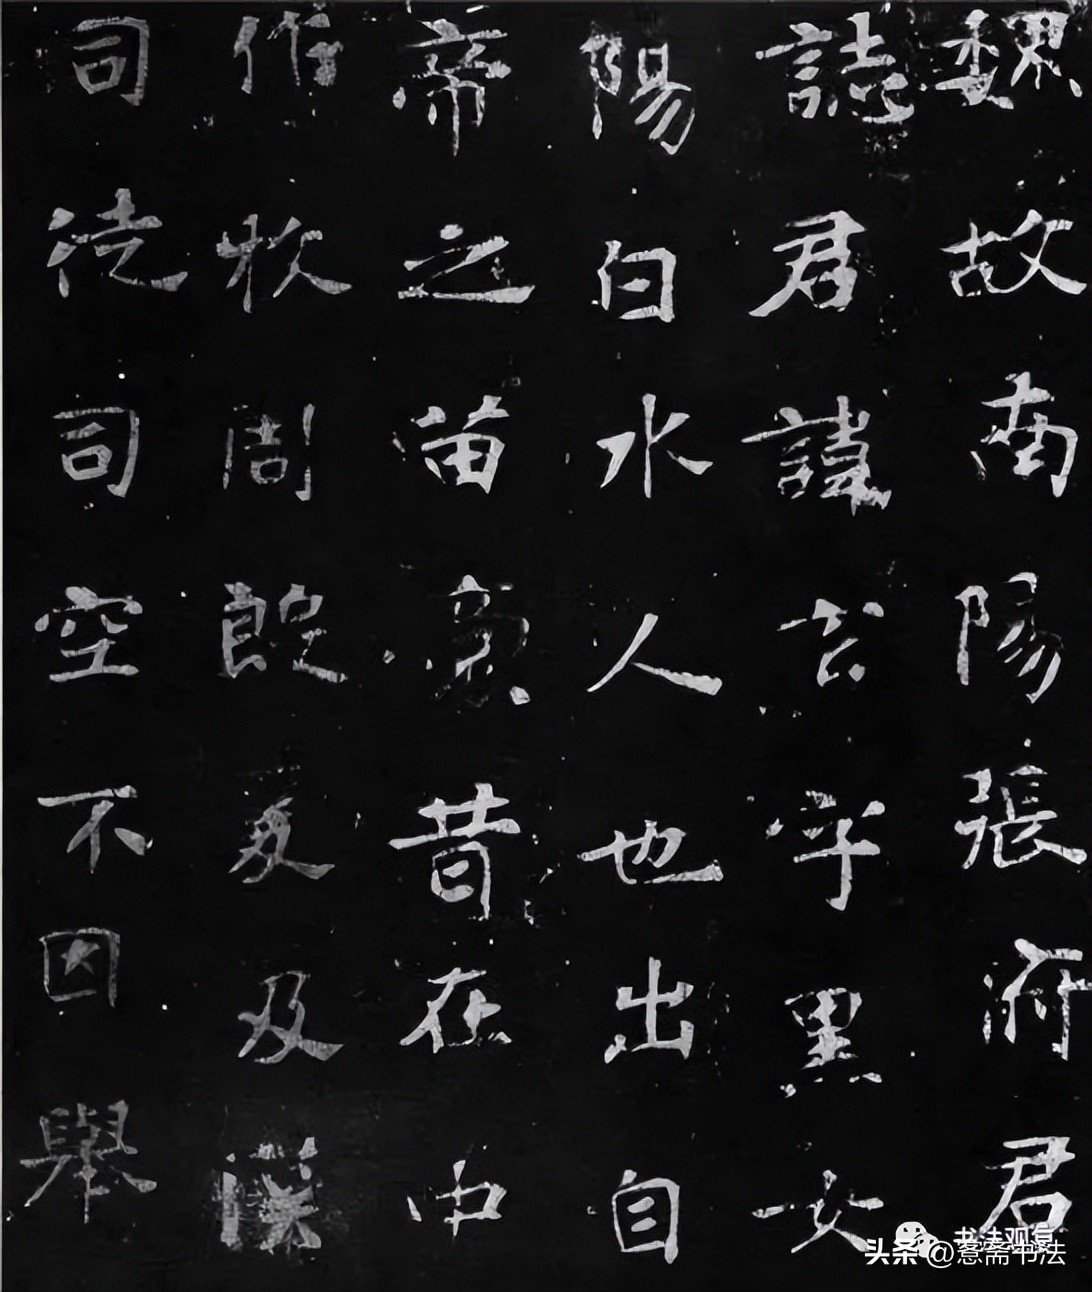 魏故南陽張府君
誌君諱玄字黑女
陽白水人也出自
帝之苗裔昔在中
作牧周殷爰及漢
司徒司空不因舉
书法观复
头条@斋书法